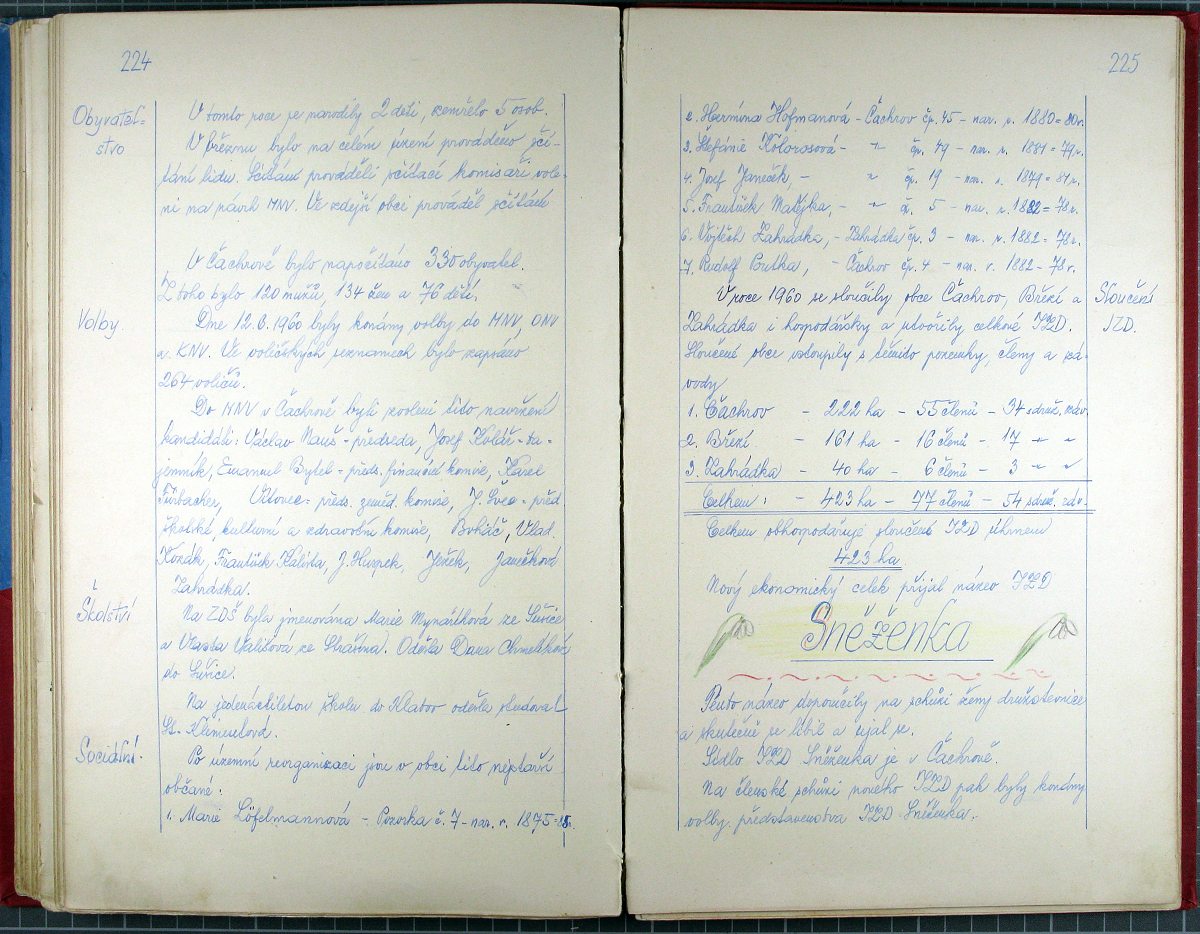 224
Obyvatel=
stvo
V tomto roce se narodily 2 děti, zemřelo 5 osob.
V březnu bylo na celém území prováděno sčí-
tání lidu. Sčítání prováděli sčítací komisaři vole-
ni na návrh MNV. Ve zdejší obci prováděl sčítání
V Čachrově bylo napočítáno 330 obyvatel.
Z toho bylo 120 mužů, 134 žen a 76 dětí.
Volby.
Dne 12.6.1960 byly konány volby do MNV, ONV
a KNV. Ve voličských seznamech bylo zapsáno
264 voličů.
Do MNV v Čachrově byli zvoleni tito navržení
kandidáti: Václav Nauš - předseda, Josef Kolář - ta-
jemník, Emanuel Bytel - předs. finanční komise, Karel
Fürbacher, Vítovec - předs. zeměd. komise, J. Švec - před.
školské, kulturní a zdravotní komise, Vlad.
Kozák, František Kališta, J. Huspek, Ježek, Janečková
Zahrádka.
Školství
Na ZDŠ byla jmenována Marie ze Sušice
a Vlasta Vališová ze Strašína. Odešla Dana Chmelíková
do Sušice.
Na jedenáctiletou školu do Klatov odešla studovat
St. Klimentová.
Sociální.
Po územní reorganizaci jsou v obci tito nejstarší
občané:
1. Marie Löfelmannová - č. 7 - nar. r. 1875 =
225
2. Hermína Hofmanová - Čachrov čp. 45 - nar. r. 1880 = 80 r.
3. Štefánie - " čp. 49 - nar. r. 1881 = 79 r.
4. Josef Janeček, - " čp. 19 - nar. r. 1879 = 81 r.
5. František Matějka, - " čp. 5 - nar. r. 1882 = 78 r.
6. Vojtěch Zahrádka, - Zahrádka čp. 3 - nar. r. 1882 = 78 r.
7. Rudolf Boutka, - Čachrov čp. 4 - nar. r. 1882 - 78 r.
V roce 1960 se sloučily obce Čachrov, Březí a
Sloučení
JZD.
Zahrádka i hospodářsky a utvořily celkové JZD.
Sloučené obce vstoupily s těmito pozemky, členy a zá-
vody
1. Čachrov - 222 ha - 55 členů - 34 sdruž. záv.
2. Březí - 161 ha - 16 členů - 17 " "
3. Zahrádka - 40 ha - 6 členů - 3 " "
Celkem: - 423 ha - 77 členů - 54 sdruž. záv.
Celkem obhospodařuje sloučené JZD úhrnem
423 ha
Nový ekonomický celek přijal název JZD
Sněženka
Tento název doporučily na schůzi ženy družstevnice
a skutečně se líbil a ujal se.
Sídlo JZD Sněženka je v Čachrově.
Na členské schůzi nového JZD pak byly konány
volby představenstva JZD Sněženka.